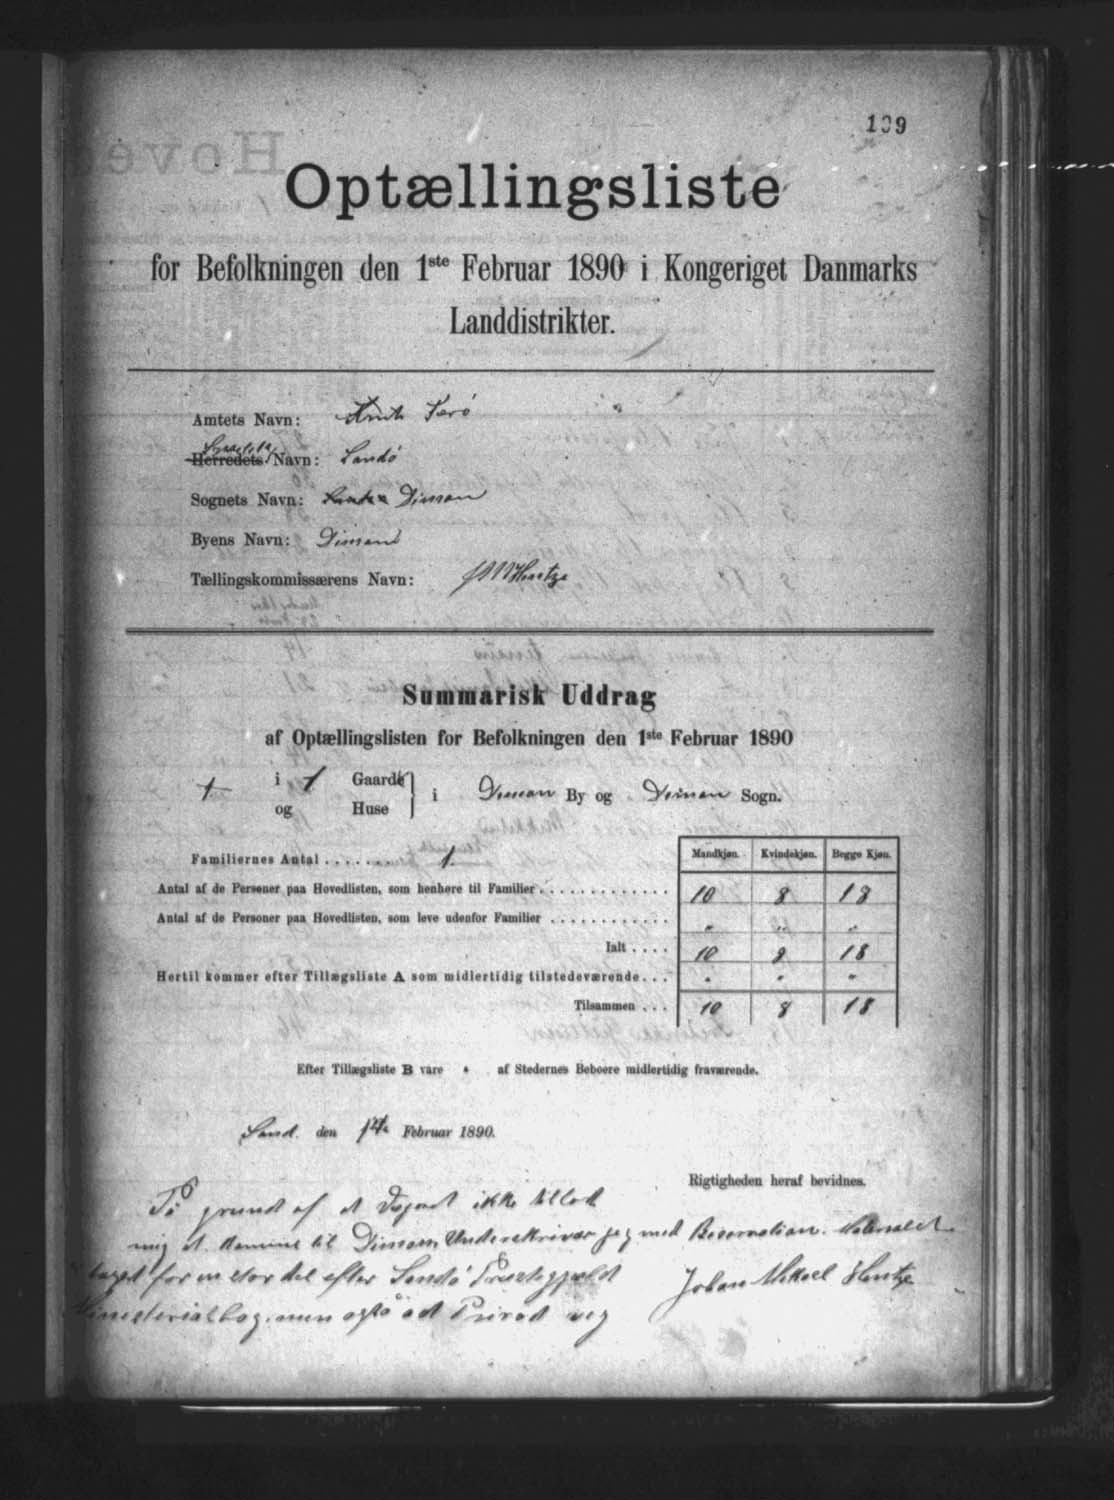 139
Optællingsliste
for Befolkningen den 1ste Februar 1890 i Kongeriget Danmarks
Landdistrikter.
Amtets Navn: Færö
Herredets Navn: Sandö
Sognets Navn: Dimon
Byens Navn: Dimon
Tællingskommissærens Navn: J M Hentze
Summarisk Uddrag
af Optællingslisten for Befolkningen den 1ste Februar 1890
1 i 1 Gaarde
og Huse
i Dimon By og Dimon Sogn.
Mandkjøn. Kvindekjøn. Begge Kjøn.
Familiernes Antal . . . . . . . 1.
Antal af de Personer paa Hovedlisten, som henhøre til Familier . . . . . . . . . . . . . 10 8 18
Antal af de Personer paa Hovedlisten, som leve udenfor Familier . . . . . . . . . . . . " " "
Ialt . . . . 10 8 18
Hertil kommer efter Tillægsliste A som midlertidig tilstedeværende . . . " " "
Tilsammen . . . 10 8 18
Efter Tillægsliste B vare " af Stedernes Beboere midlertidig fraværende.
Sand. den Februar 1890.
Rigtigheden heraf bevidnes.
På grund af at ikke tillod
mig at komme til Dimon, Underskriver jeg med Reservation. Materialet
taget for en stor del efter Sandö Præstegjeld
Ministerialbog, men også ad Privat vej
Johan Mikael Hentze